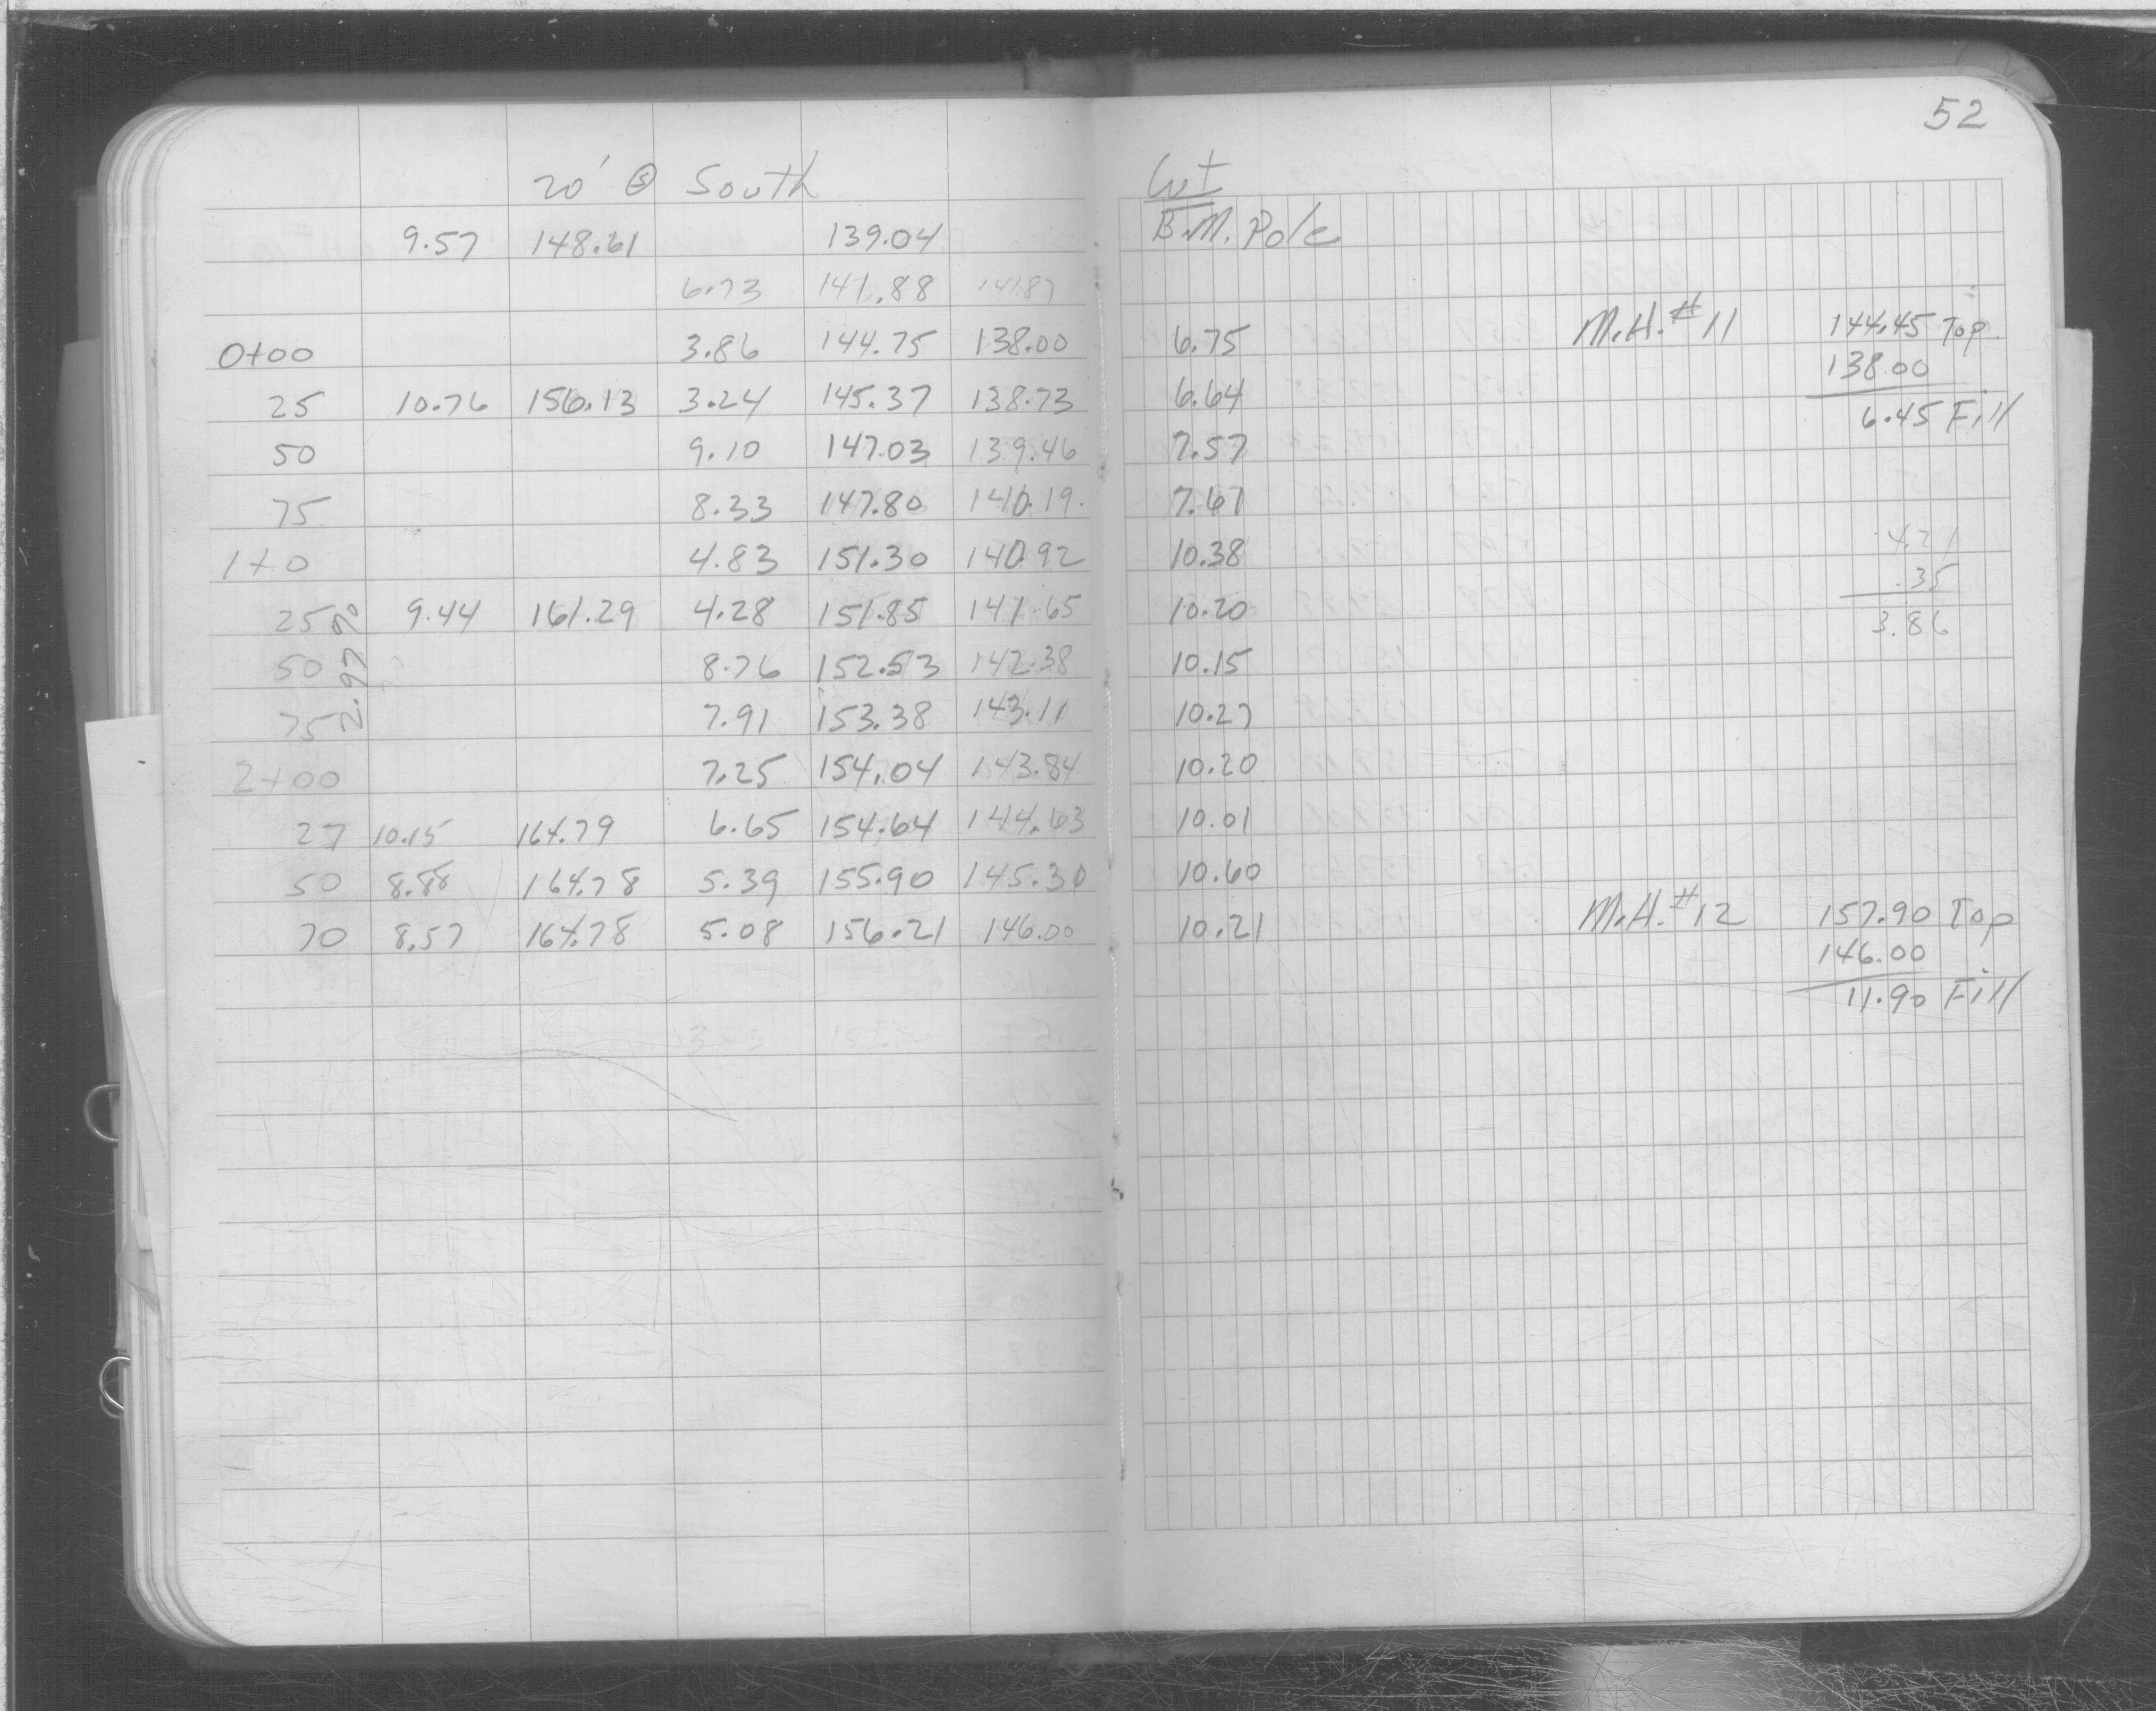 52
20' @ South Cut
9.57 148.61 139.04 B.M. Pole
6.73 141.88 141.87
0+00 3.86 144.75 138.00 6.75 M.H. #11 144.45 Top
138.00
25 10.76 156.13 3.24 145.37 138.73 6.64
6.45 Fill
50 9.10 147.03 139.46 7.57
75 8.33 147.80 140.19 7.61
4.21
1+0 4.83 151.30 140.92 10.38
.35
25 9.44 161.29 4.28 151.85 141.65 10.20
3.86
2.92%
50 8.76 152.53 142.38 10.15
75 7.91 153.38 143.11 10.27
2+00 7.25 154.04 143.84 10.20
27 10.15 164.79 6.65 154.64 144.63 10.01
50 8.88 164.78 5.39 155.90 145.30 10.60
70 8.57 164.78 5.08 156.21 146.00 10.21 M.H. #12 157.90 Top
146.00
11.90 Fill